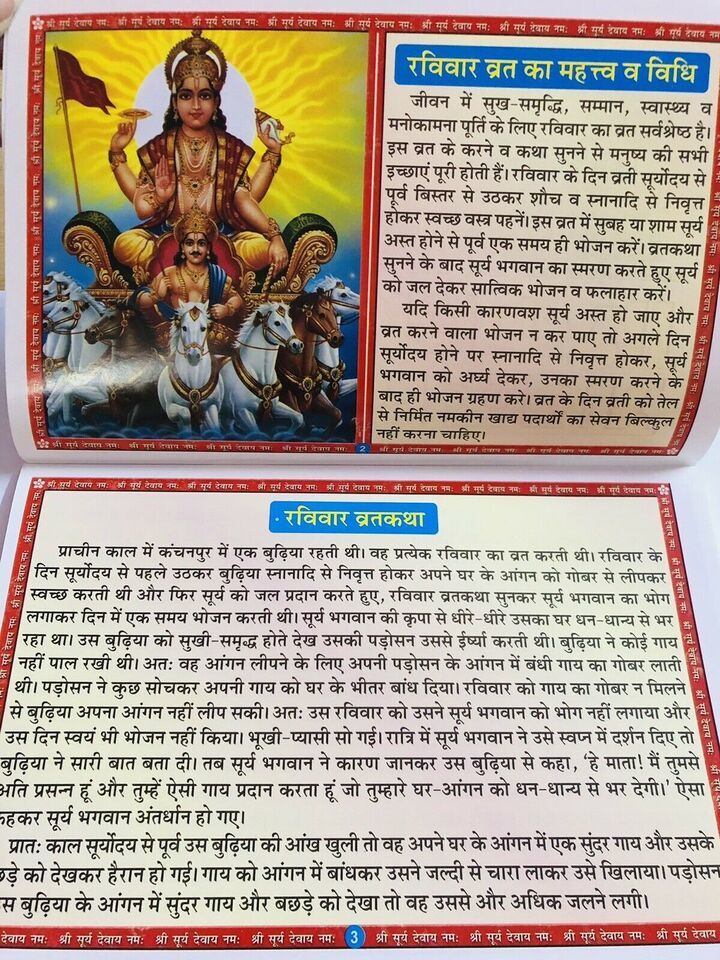 श्री सूर्य देवाय नमः श्री सूर्य देवाय नमः श्री सूर्य देवाय नमः श्री सूर्य देवाय नमः श्री सूर्य देवाय नमः श्री सूर्य देवाय नमः श्री सूर्य देवाय नमः
रविवार व्रत का महत्त्व व विधि
जीवन में सुख-समृद्धि, सम्मान, स्वास्थ्य व
मनोकामना पूर्ति के लिए रविवार का व्रत सर्वश्रेष्ठ है।
इस व्रत के करने व कथा सुनने से मनुष्य की सभी
इच्छाएं पूरी होती हैं। रविवार के दिन व्रती सूर्योदय से
पूर्व बिस्तर से उठकर शौच व स्नानादि से निवृत्त
होकर स्वच्छ वस्त्र पहनें। इस व्रत में सुबह या शाम सूर्य
अस्त होने से पूर्व एक समय ही भोजन करें। व्रतकथा
सुनने के बाद सूर्य भगवान का स्मरण करते हुए सूर्य
को जल देकर सात्विक भोजन व फलाहार करें।
यदि किसी कारणवश सूर्य अस्त हो जाए और
व्रत करने वाला भोजन न कर पाए तो अगले दिन
सूर्योदय होने पर स्नानादि से निवृत्त होकर, सूर्य
भगवान को अर्घ्य देकर, उनका स्मरण करने के
बाद ही भोजन ग्रहण करे। व्रत के दिन व्रती को तेल
से निर्मित नमकीन खाद्य पदार्थों का सेवन बिल्कुल
नहीं करना चाहिए।
श्री सूर्य देवाय नमः श्री सूर्य देवाय नमः श्री सूर्य देवाय नमः श्री सूर्य देवाय नमः 2 श्री सूर्य देवाय नमः श्री सूर्य देवाय नमः श्री सूर्य देवाय नमः श्री सूर्य देवाय नमः
श्री सूर्य देवाय नमः श्री सूर्य देवाय नमः श्री सूर्य देवाय नमः श्री सूर्य देवाय नमः श्री सूर्य देवाय नमः श्री सूर्य देवाय नमः श्री सूर्य देवाय नमः श्री सूर्य देवाय नमः
रविवार व्रतकथा
प्राचीन काल में कंचनपुर में एक बुढ़िया रहती थी। वह प्रत्येक रविवार का व्रत करती थी। रविवार के
दिन सूर्योदय से पहले उठकर बुढ़िया स्नानादि से निवृत्त होकर अपने घर के आंगन को गोबर से लीपकर
स्वच्छ करती थी और फिर सूर्य को जल प्रदान करते हुए, रविवार व्रतकथा सुनकर सूर्य भगवान का भोग
लगाकर दिन में एक समय भोजन करती थी। सूर्य भगवान की कृपा से धीरे-धीरे उसका घर धन-धान्य से भर
रहा था। उस बुढ़िया को सुखी-समृद्ध होते देख उसकी पड़ोसन उससे ईर्ष्या करती थी। बुढ़िया ने कोई गाय
नहीं पाल रखी थी। अतः वह आंगन लीपने के लिए अपनी पड़ोसन के आंगन में बंधी गाय का गोबर लाती
थी। पड़ोसन ने कुछ सोचकर अपनी गाय को घर के भीतर बांध दिया। रविवार को गाय का गोबर न मिलने
से बुढ़िया अपना आंगन नहीं लीप सकी। अतः उस रविवार को उसने सूर्य भगवान को भोग नहीं लगाया और
उस दिन स्वयं भी भोजन नहीं किया। भूखी-प्यासी सो गई। रात्रि में सूर्य भगवान ने उसे स्वप्न में दर्शन दिए तो
बुढ़िया ने सारी बात बता दी। तब सूर्य भगवान ने कारण जानकर उस बुढ़िया से कहा, 'हे माता! मैं तुमसे
अति प्रसन्न हूं और तुम्हें ऐसी गाय प्रदान करता हूं जो तुम्हारे घर-आंगन को धन-धान्य से भर देगी।' ऐसा
कहकर सूर्य भगवान अंतर्धान हो गए।
प्रातः काल सूर्योदय से पूर्व उस बुढ़िया की आंख खुली तो वह अपने घर के आंगन में एक सुंदर गाय और उसके
छड़े को देखकर हैरान हो गई। गाय को आंगन में बांधकर उसने जल्दी से चारा लाकर उसे खिलाया। पड़ोसन
स बुढ़िया के आंगन में सुंदर गाय और बछड़े को देखा तो वह उससे और अधिक जलने लगी।
देवाय नमः श्री सूर्य देवाय नमः श्री सूर्य देवाय नमः श्री सूर्य देवाय नमः 3 श्री सूर्य देवाय नमः श्री सूर्य देवाय नमः श्री सूर्य देवाय नमः श्री सूर्य देवाय नमः